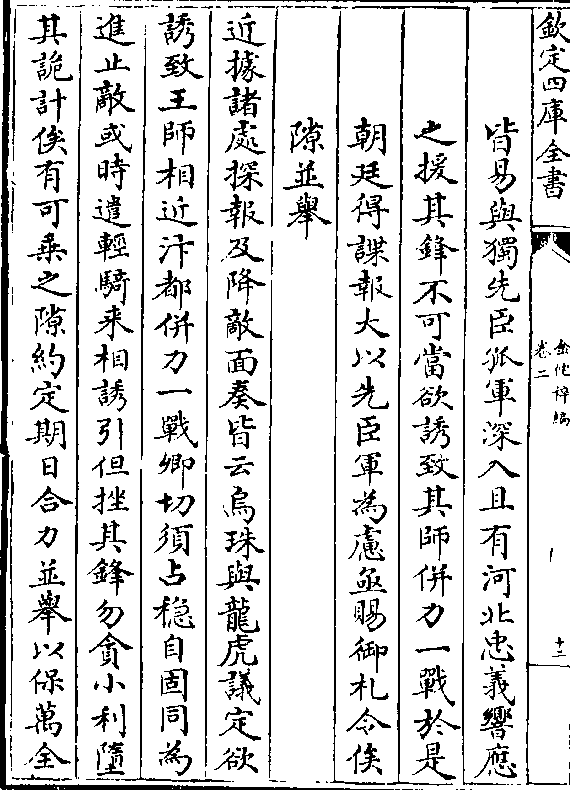 欽定四庫全書
金佗稡編
卷二
十二
皆易與獨先臣孤軍深入且有河北忠義響應
之援其鋒不可當欲誘致其師併力一戰於是
朝廷得諜報大以先臣軍為慮亟賜御札令俟
隙並舉
近據諸處探報及降敵面奏皆云烏珠與龍虎議定欲
誘致王師相近汴都併力一戰卿切須占穏自固同為
進止敵或時遣輕騎来相誘引但挫其鋒勿貪小利墮
其詭計俟有可乗之隙約定期日合力並舉以保萬全